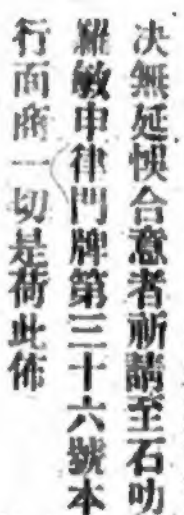 决無延悞合意者祈請至石叻
羅敏申律門牌第三十六號本
行面商一切是荷此佈